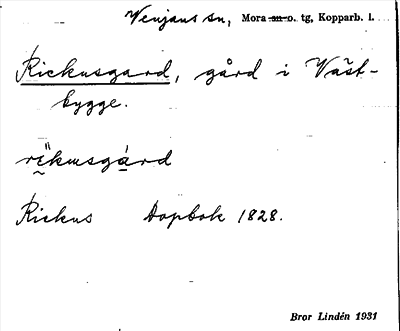 Venjans sn, Mora sn o. tg, Kopparb. l.
Rickusgard, gård i Väst-
bygge.
rikusgård
Rickus Dopbok 1828.
Bror Lindén 1931